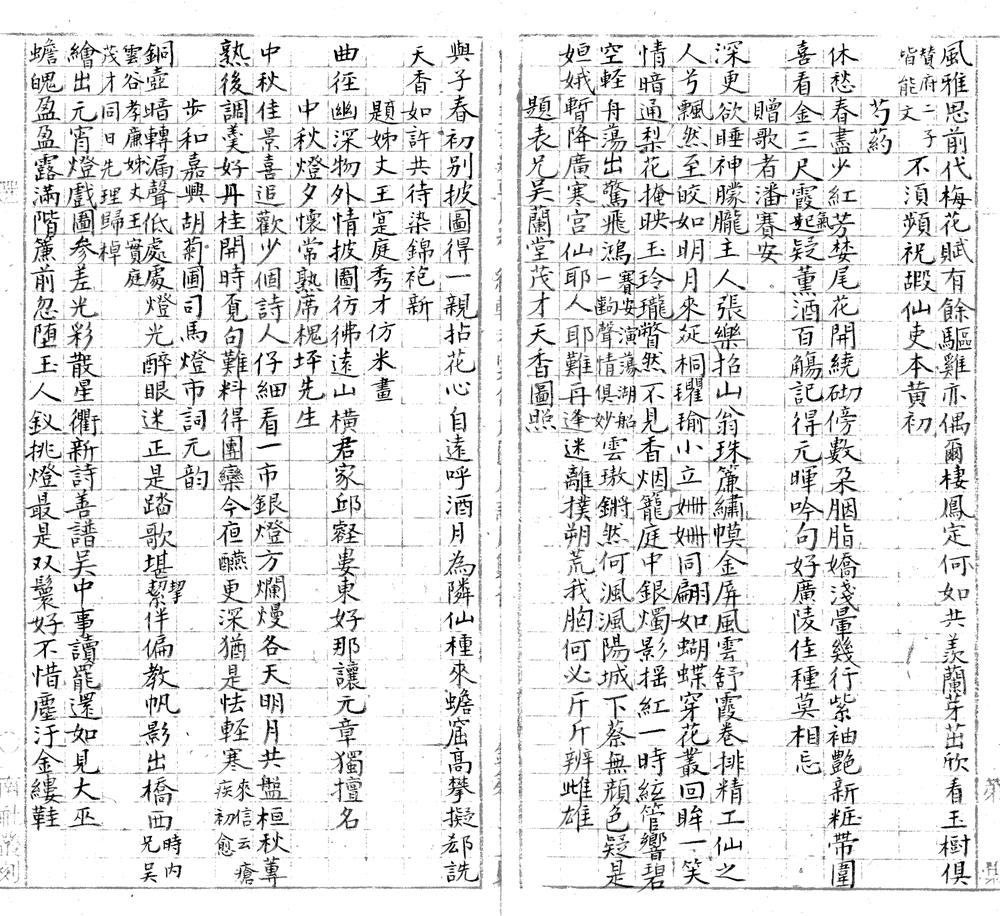 風雅思前代梅花賦有餘驅雞亦偶爾棲鳳定何如共羨蘭芽茁欣看玉樹俱
贊府二子
皆能文
不須頻祝嘏仙吏本黄初
芍葯
休愁春盡少紅芳婪尾花開繞砌傍數朶胭脂嬌淺暈幾行紫袖艷新粧帶圍
喜看金三尺霞氣起疑薰酒百觴記得元暉吟句好廣陵佳種莫相忘
贈歌者潘賽安
深更欲睡神朦朧主人張樂招山翁珠簾繡幙金屏風雲舒霞卷排精工仙之
人兮飄然至皎如明月來莚桐瓘瑜小立姗姗同翩如蝴蝶穿花叢回眸一笑
情暗通梨花掩映玉玲瓏瞥然不見香烟籠庭中銀燭影摇紅一時絃管響碧
空軽舟蕩出驚飛鴻
賽安演蕩湖船
一齣聲情俱妙
雲璈鏘然何渢渢陽城下蔡無顔色疑是
姮娥暫降廣寒宮仙耶人耶難再逢迷離撲朔荒我胸何必斤斤辨雌雄
題表兄吴蘭堂茂才天香圖照
與子春初别披圖得一親拈花心自遠呼酒月為隣仙種來蟾窟高攀擬郄詵
天香如許共待染錦袍新
題姊丈王寔庭秀才仿米畫
曲徑幽深物外情披圖彷彿遠山横君家邱壑婁東好那讓元章獨擅名
中秋燈夕懷常熟席槐坪先生
中秋佳景喜追歡少個詩人仔細看一市銀燈方爛熳各天明月共盤桓秋蓴
熟後調羹好丹桂開時覔句難料得團欒今夜醼更深猶是怯軽寒
來信云瘧
疾初愈
步和嘉興胡菊圃司馬燈市詞元韵
銅壺暗轉漏聲低處處燈光醉眼迷正是踏歌堪挈伴偏教帆影出橋西
時内
兄吴
雲谷孝廉姊丈王實庭
茂才同日先理歸棹
繪出元宵燈戲圖參差光彩散星衢新詩善譜吴中事讀罷還如見大巫
蟾魄盈盈露滿階簾前忽堕玉人釵挑燈最是双鬟好不惜塵汙金縷鞋